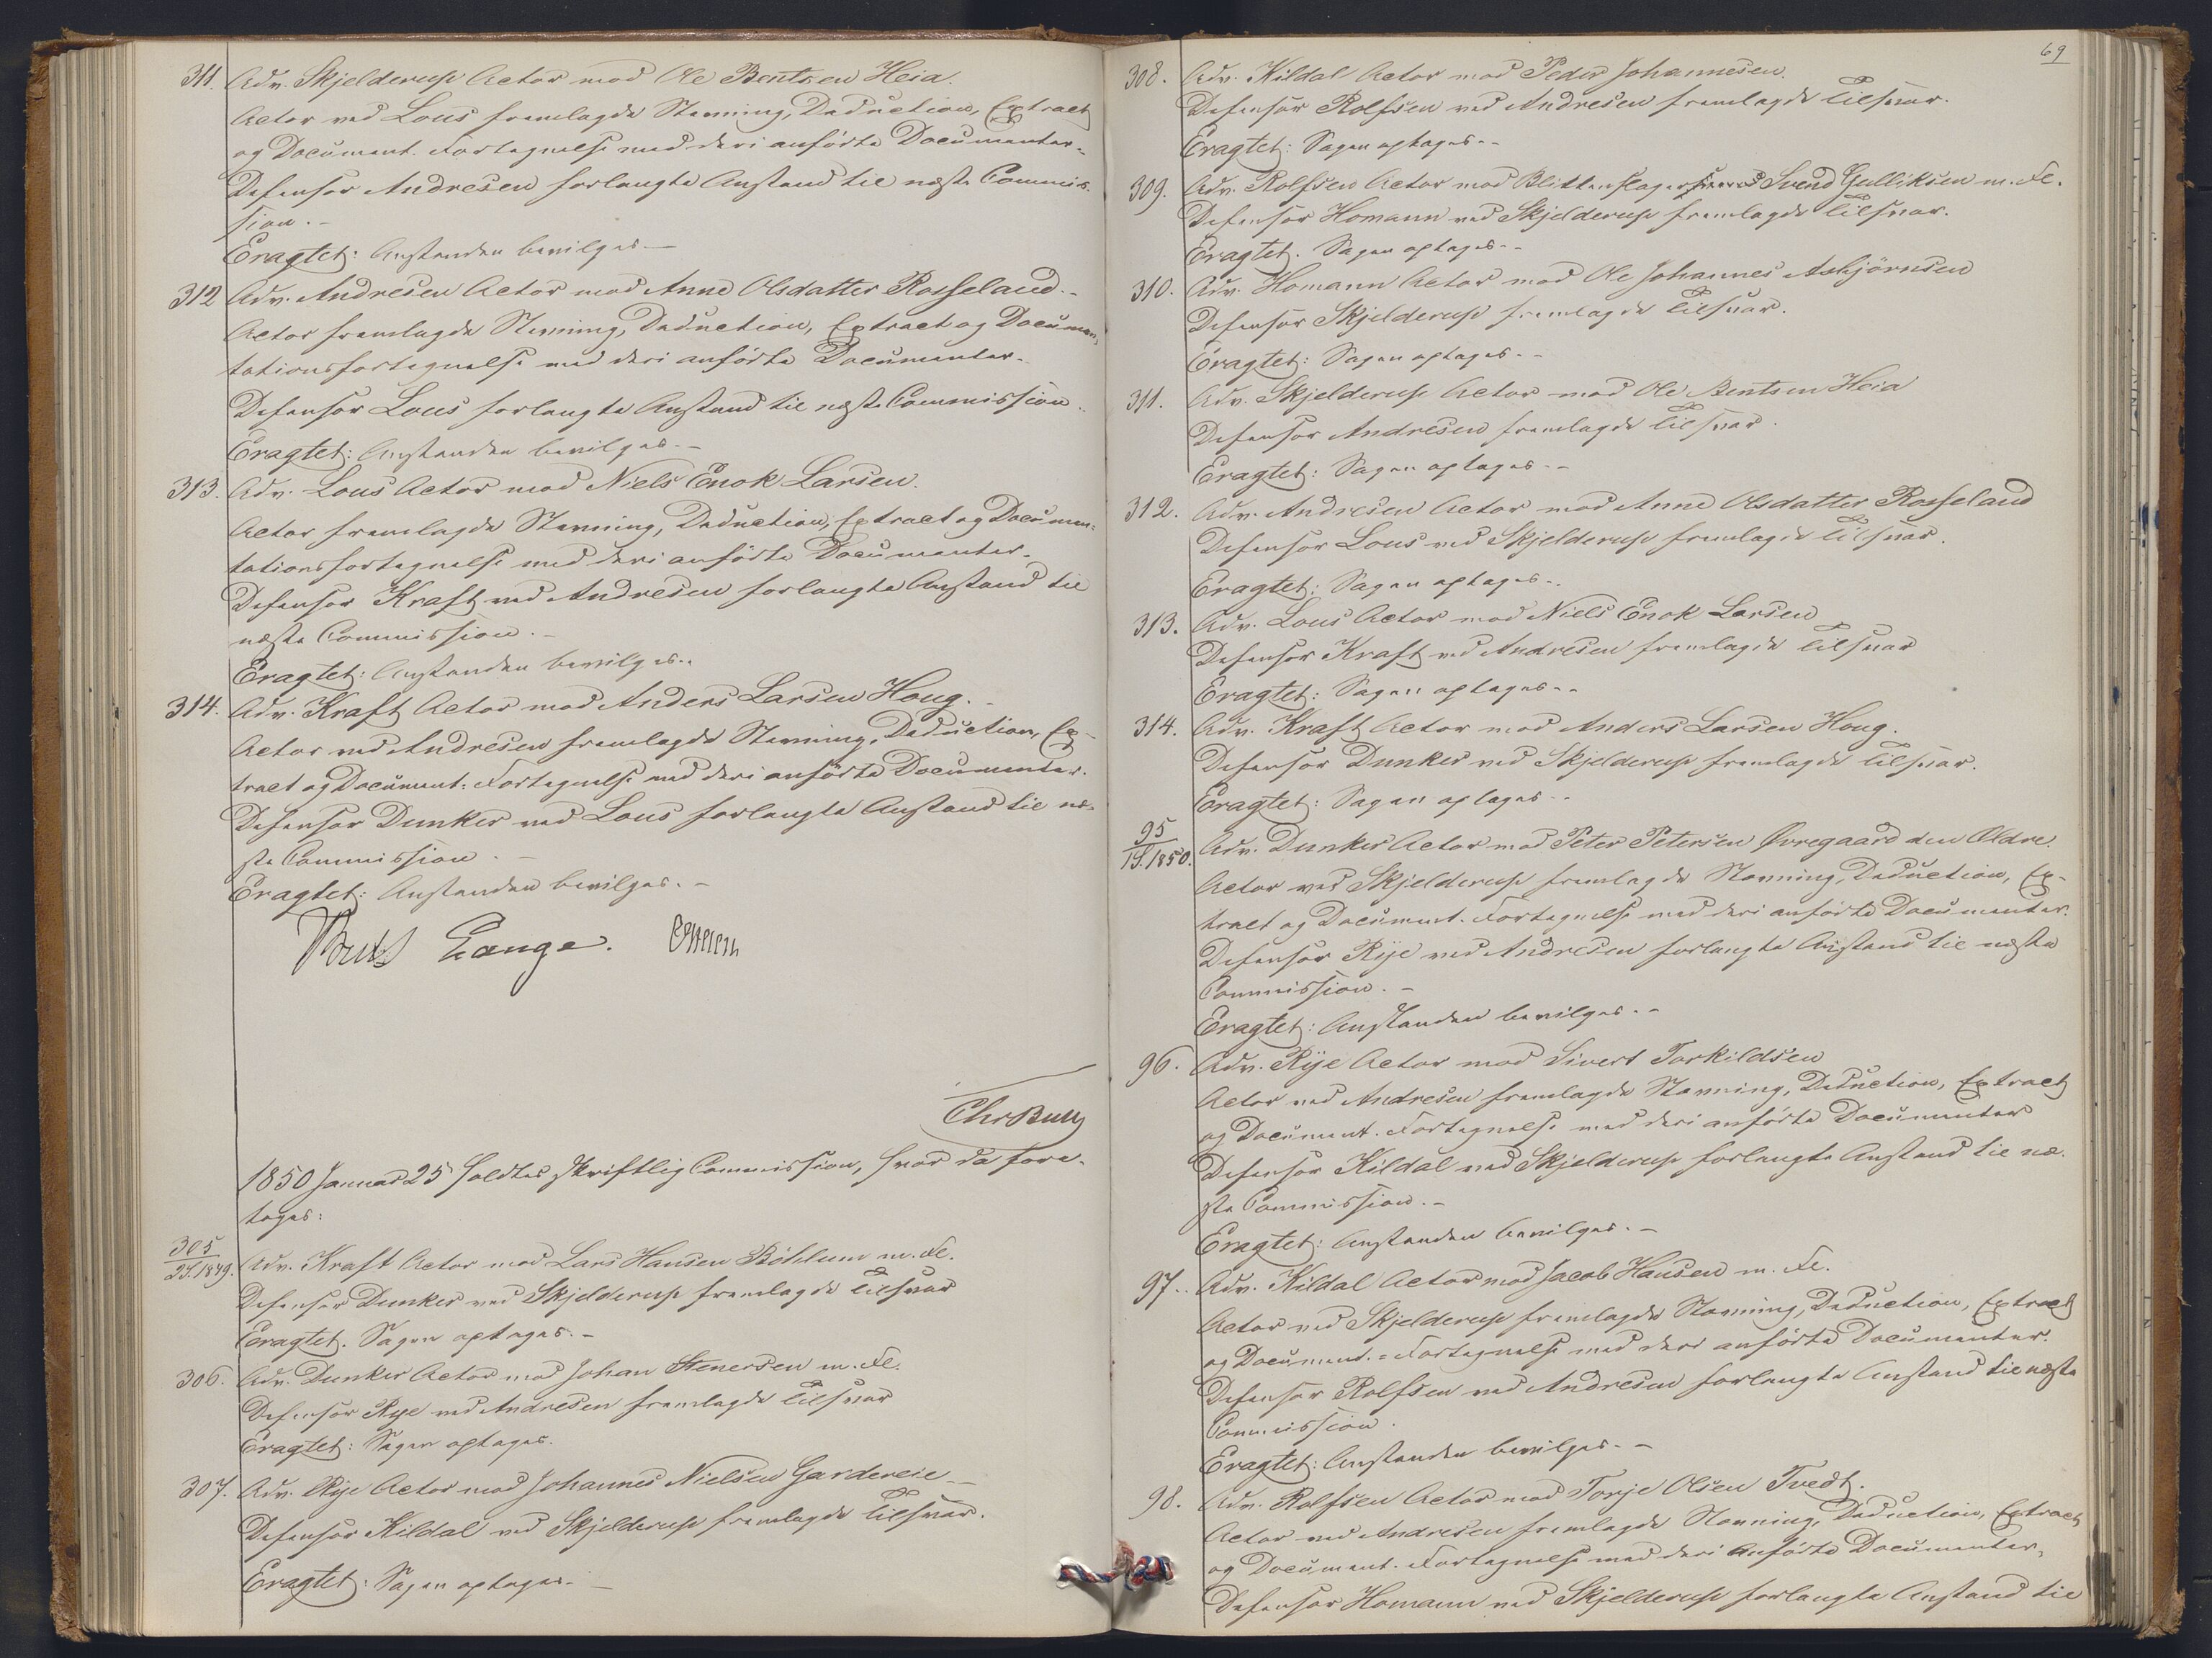 311. Adv. Skjelderup Actor mod Ole Bentsen Heia.
Actor ved Lous fremlagde Stevning, Deduction, Extract
og Document. Fortegnelse med deri anførte Documenter.
Defensor Andresen forlangte Anstand til næste Commis-
sion.-
Eragtet: Anstanden bevilges.-
312 Adv. Andresen Actor mod Anne Olsdatter Rosseland.-
Actor fremlagde Stevning, Deduction, Extract og Documen-
tationsfortegnelse med deri anførte Documenter.
Defensor Lous forlangte Anstand til næste Commission.
Eragtet: Anstanden bevilges.-
313. Adv. Lous Actor mod Niels Enok Larsen.
Actor fremlagde Stevning, Deduction, Extract og Documen-
tationsfortegnelse med deri anførte Documenter.
Defensor Kraft ved Andresen forlangte Anstand til
næste Commission.-
Eragtet: Anstanden bevilges..
314. Adv. Kraft Actor mod Anders Larsen Houg.-
Actor ved Andresen fremlagde Stevning, Deduction, Ex-
tract og Document: Fortegnelse med deri anførte Documenter.
Defensor Dunker ved Lous forlangte Anstand til næ-
ste Commission.-
Eragtet: Anstanden bevilges.-
Lange.
Chr Bull
1850 Januar 25 holdtes skriftlig Commission, hvor da fore-
toges:
305/2S.1849. Adv. Kraft Actor mod Lars Hansen Böhlum m. Fl.
Defensor Dunker ved Skjelderup fremlagde Tilsvar
Eragtet. Sagen optages.-
306. Adv. Dunker Actor mod Johan Stenersen m. Fl.
Defensor Rye ved Andresen fremlagde Tilsvar
Eragtet: Sagen optages.
307. Adv. Rye Actor mod Johannes Nielsen Gardereie-
Defensor Kildal ved Skjelderup fremlagde Tilsvar.
Eragtet: Sagen optages.-
69
308. Adv. Kildal Actor mod Peder Johannesen.
Defensor Rolfsen ved Andresen fremlagde Tilsvar.
Eragtet: Sagen optages.-
309. Adv. Rolfsen Actor mod Svend Gulliksen m. Fl.
Defensor Homann ved Skjelderup fremlagde Tilsvar.
Eragtet. Sagen optages.-
310. Adv. Homann Actor mod Ole Johannes Asbjörnsen
Defensor Skjelderup fremlagde Tilsvar.
Eragtet: Sagen optages.-
311. Adv. Skjelderup Actor mod Ole Bentsen Heia
Defensor Andresen fremlagde Tilsvar.
Eragtet: Sagen optages.-
312. Adv. Andresen Actor mod Anne Olsdatter Rosseland
Defensor Lous ved Skjelderup fremlagde Tilsvar.
Eragtet: Sagen optages..
313. Adv. Lous Actor mod Niels Enok Larsen
Defensor Kraft ved Andresen fremlagde Tilsvar
Eragtet: Sagen optages.-
314. Adv. Kraft Actor mod Anders Larsen Houg.
Defensor Dunker ved Skjelderup fremlagde Tilsvar.
Eragtet: Sagen optages..
95/1S.1850. Adv. Dunker Actor mod Peter Petersen Øvregaard den Ældre.
Actor ved Skjelderup fremlagde Stevning, Deduction, Ex-
tract og Document. Fortegnelse med deri anførte Documenter.
Defensor Rye ved Andresen forlangte Anstand til næste
Commission.-
Eragtet: Anstanden bevilges.-
96. Adv. Rye Actor mod Sivert Torkildsen
Actor ved Andresen fremlagde Stevning, Deduction, Extract
og Document. Fortegnelse med deri anførte Documenter
Defensor Kildal ved Skjelderup forlangte Anstand til næ-
ste Commission.-
Eragtet: Anstanden bevilges.-
97. Adv. Kildal Actor mod Jacob Hansen m. Fl.
Actor ved Skjelderup fremlagde Stevning, Deduction, Extract
og Document.-Fortegnelse med deri anførte Documenter.
Defensor Rolfsen ved Andresen forlangte Anstand til næste
Commission.
Eragtet: Anstanden bevilges.-
98. Adv. Rolfsen Actor mod Torje Olsen Tvedt.
Actor ved Andresen fremlagde Stevning, Deduction, Extract
og Document. Fortegnelse med deri anførte Documenter,
Defensor Homann ved Skjelderup forlangte Anstand til